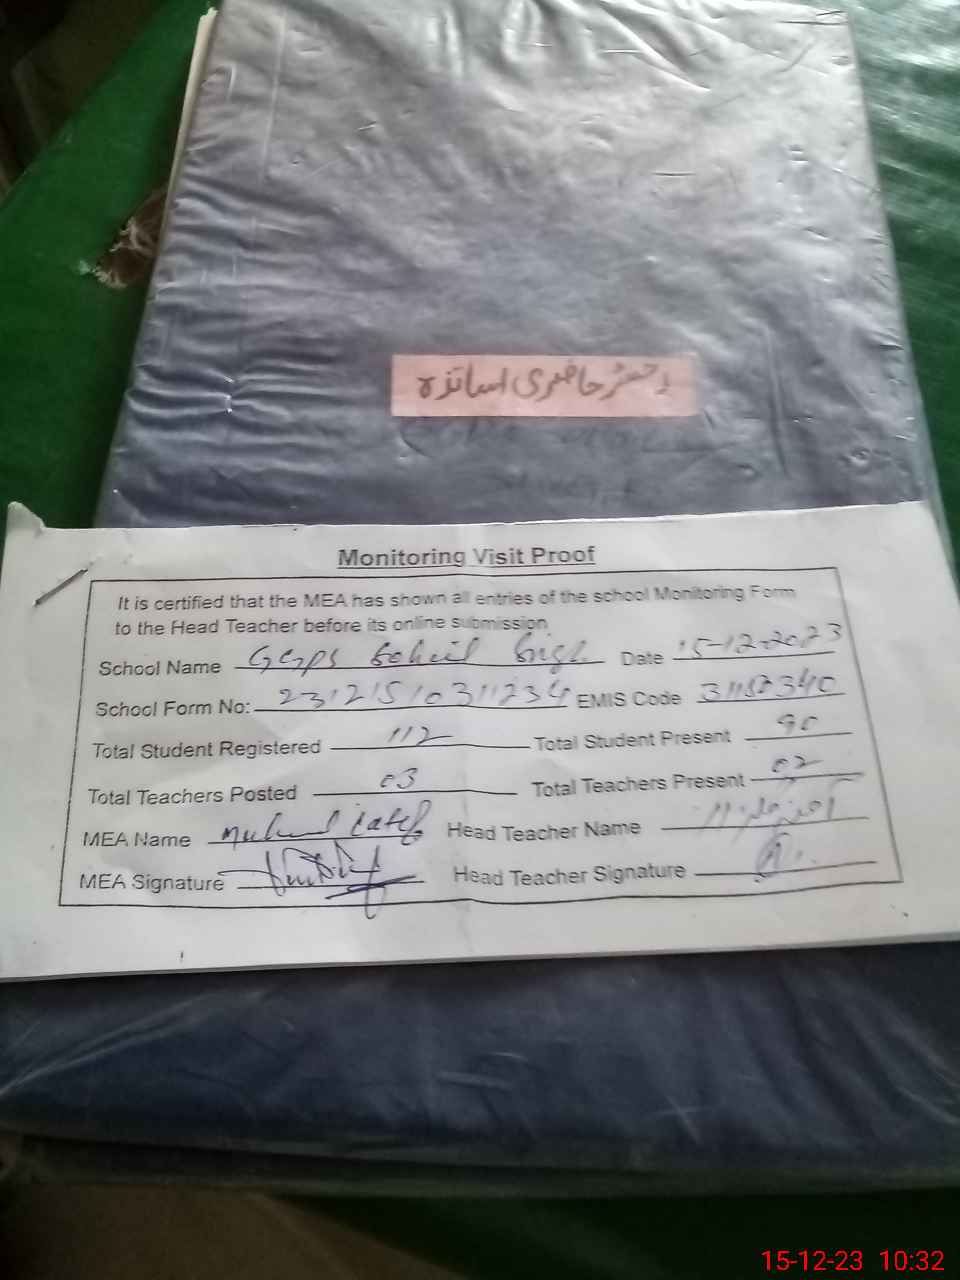 رجسٹر حاضری اساتذہ
Monitoring Visit Proof
It is certified that the MEA has shown all entries of the school Monitoring Form
to the Head Teacher before its online submission
School Name GGPS Date 15-12-2023
School Form No: 23121510311234 EMIS Code
Total Student Registered 112 Total Student Present 90
Total Teachers Posted 03 Total Teachers Present 02
MEA Name Head Teacher Name
MEA Signature Head Teacher Signature
15-12-23 10:32